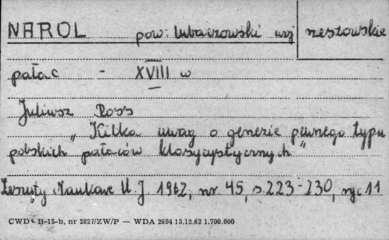 NAROL pow. lubaczowski woj rzeszowskie
pałac - XVIII w
Juliusz Ross
„Kilka uwag o genezie pewnego typu
polskich pałaców klasycystycznych"
Zeszyty Naukowe U.J. 1962, nr. 45, s. 223-230, ryc 11
CWD B-15-b, nr 2827/ZW/P — WDA 2694 13.12.62 1.700.000